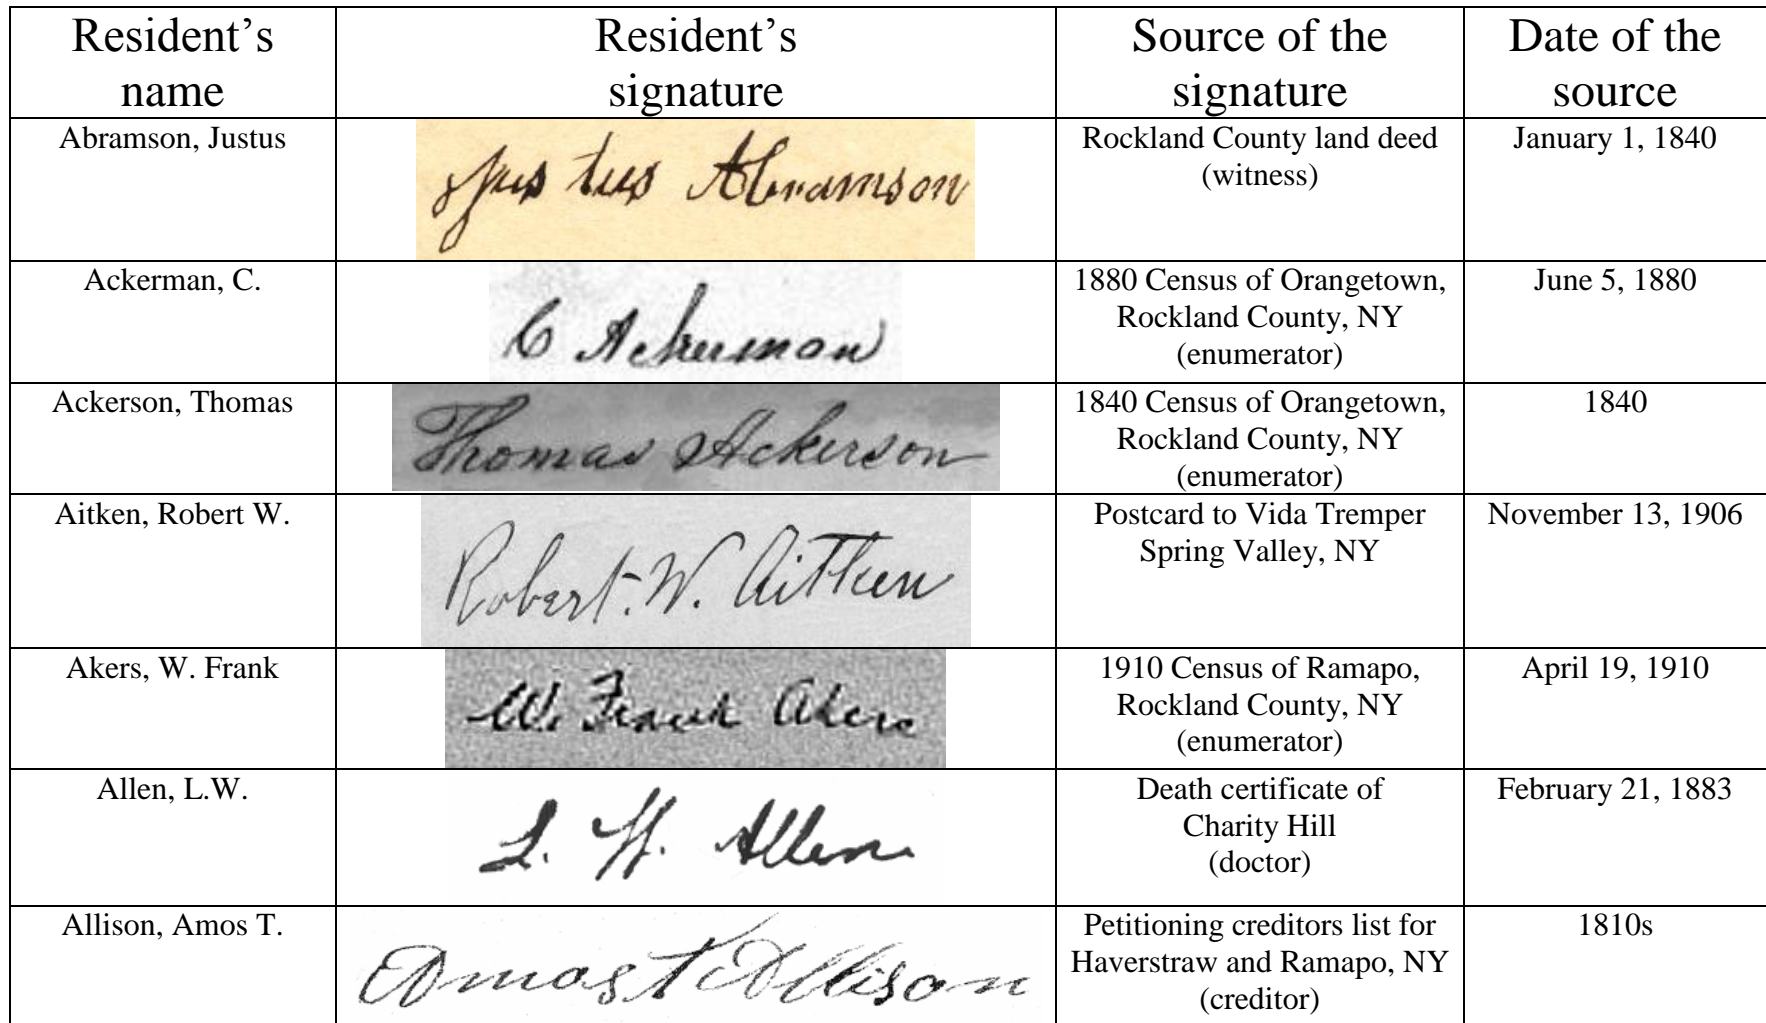 Resident's
name
Resident's
signature
Source of the
signature
Date of the
source
Abramson, Justus
Justus Abramson
Rockland County land deed
(witness)
January 1, 1840
Ackerman, C.
C Ackerman
1880 Census of Orangetown,
Rockland County, NY
(enumerator)
June 5, 1880
Ackerson, Thomas
Thomas Ackerson
1840 Census of Orangetown,
Rockland County, NY
(enumerator)
1840
Aitken, Robert W.
Robert. W. Aitken
Postcard to Vida Tremper
Spring Valley, NY
November 13, 1906
Akers, W. Frank
W. Frank Akers
1910 Census of Ramapo,
Rockland County, NY
(enumerator)
April 19, 1910
Allen, L.W.
L. W. Allen
Death certificate of
Charity Hill
(doctor)
February 21, 1883
Allison, Amos T.
Amos T Allison
Petitioning creditors list for
Haverstraw and Ramapo, NY
(creditor)
1810s